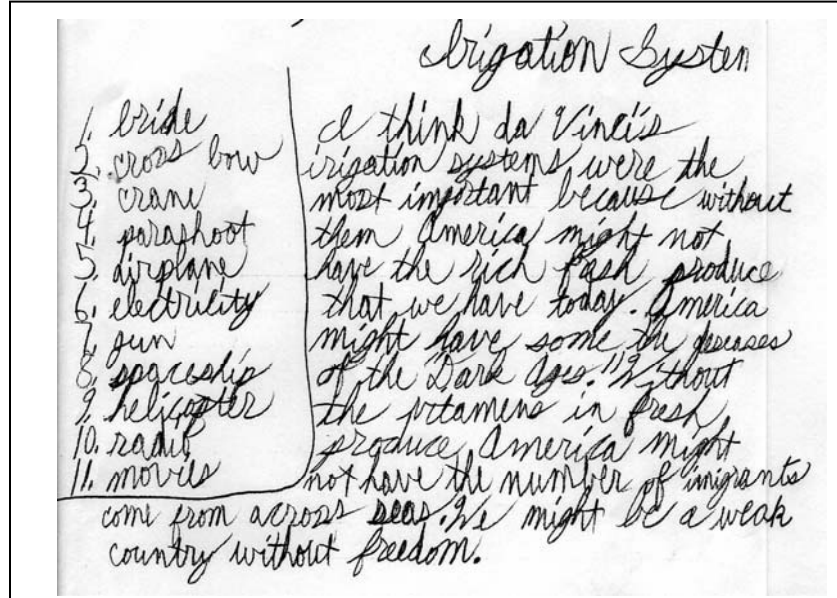 Irigation System
1. bride
2. cross bow
3. crane
4. parashoot
5. airplane
6. electricity
7. gun
8. spaceship
9. helicopter
10. radio
11. movies
I think da Vinci's
irigation systems were the
most important because without
them America might not
have the rich produce
that we have today. America
might have some the deseases
of the Dark Ages. Without
the vitamens in fresh
produce America might
not have the number of imigrants
come from across seas. We might be a weak
country without freedom.